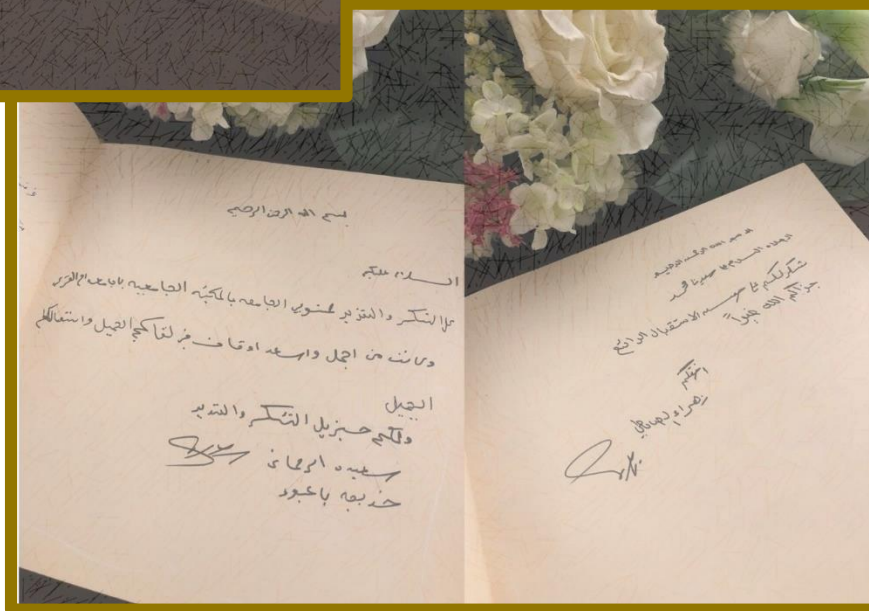 بسم الله الرحمن الرحيم
السلام عليكم
كل الشكر والتقدير لمنسوبي الجامعه بالمكتبه الجامعيه
وكانت من اجمل واسعد اوقات في لقائكم الجميل واستقبالكم
الجميل
ولكم جزيل الشكر والتقدير
سعيده الرحماني
خديجه باعبود
بسم الله الرحمن الرحيم
الصلاة السلام على سيدنا محمد
شكر لكم على حسن الاستقبال الرائع
جزاكم الله خيراً
اختكم
زهراء